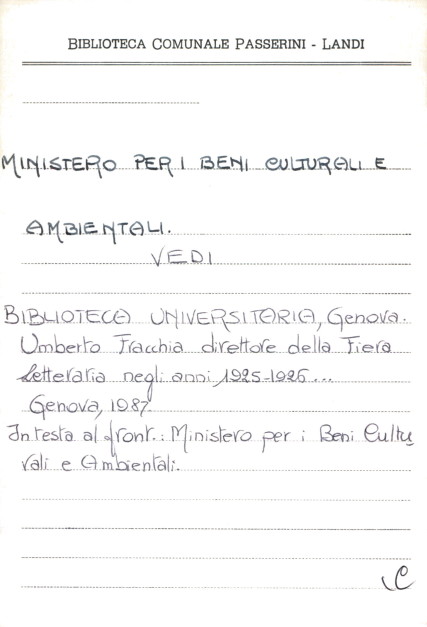 BIBLIOTECA COMUNALE PASSERINI - LANDI
MINISTERO PER I BENI CULTURALI E
AMBIENTALI.
VEDI
BIBLIOTECA UNIVERSITARIA, Genova.
Umberto Fracchia direttore della Fiera
letteraria negli anni 1925-1926...
Genova, 1987.
In testa al front.: Ministero per i Beni Cultu
rali e Ambientali.